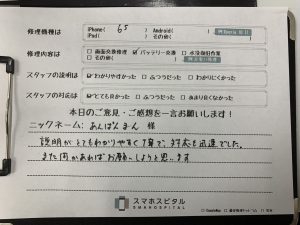 修理機種は
iPhone( 6S ) Android( )
iPad( ) その他( )
修理内容は
□画面交換修理 ☑バッテリー交換 □水没復旧作業
□その他( )
スタッフの説明は
☑わかりやすかった □ふつうだった □わかりにくかった
スタッフの対応は
☑とても良かった □ふつうだった □あまり良くなかった
本日のご意見・ご感想を一言お願いします!
ニックネーム: あんぱんまん 様
説明がとてもわかりやすく丁寧で、対応も迅速でした。
また何かあればお願いしようと思います
スマホスピタル
SMAHOSPITAL